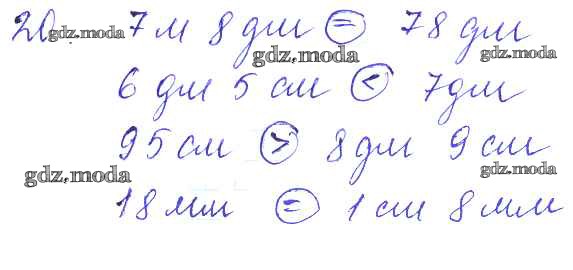 20. 7 м 8 дм = 78 дм
6 дм 5 см < 7 дм
95 см > 8 дм 9 см
18 мм = 1 см 8 мм
gdz.moda
gdz.moda
gdz.moda
gdz.moda
gdz.moda